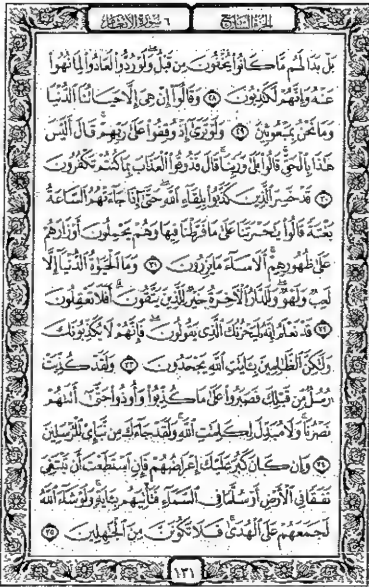 الجزء السابع
٦ سورة الأنعام
بَلْ بَدَا لَهُم مَّا كَانُوا يُخْفُونَ مِن قَبْلُ وَلَوْ رُدُّوا لَعَادُوا لِمَا نُهُوا
عَنْهُ وَإِنَّهُمْ لَكَاذِبُونَ ٢٨ وَقَالُوا إِنْ هِيَ إِلَّا حَيَاتُنَا الدُّنْيَا
وَمَا نَحْنُ بِمَبْعُوثِينَ ٢٩ وَلَوْ تَرَىٰ إِذْ وُقِفُوا عَلَىٰ رَبِّهِمْ قَالَ أَلَيْسَ
هَٰذَا بِالْحَقِّ قَالُوا بَلَىٰ وَرَبِّنَا قَالَ فَذُوقُوا الْعَذَابَ بِمَا كُنتُمْ تَكْفُرُونَ
٣٠ قَدْ خَسِرَ الَّذِينَ كَذَّبُوا بِلِقَاءِ اللَّهِ حَتَّىٰ إِذَا جَاءَتْهُمُ السَّاعَةُ
بَغْتَةً قَالُوا يَٰحَسْرَتَنَا عَلَىٰ مَا فَرَّطْنَا فِيهَا وَهُمْ يَحْمِلُونَ أَوْزَارَهُمْ
عَلَىٰ ظُهُورِهِمْ أَلَا سَاءَ مَا يَزِرُونَ ٣١ وَمَا الْحَيَوٰةُ الدُّنْيَا إِلَّا
لَعِبٌ وَلَهْوٌ وَلَلدَّارُ الْآخِرَةُ خَيْرٌ لِّلَّذِينَ يَتَّقُونَ أَفَلَا تَعْقِلُونَ
٣٢ قَدْ نَعْلَمُ إِنَّهُ لَيَحْزُنُكَ الَّذِي يَقُولُونَ فَإِنَّهُمْ لَا يُكَذِّبُونَكَ
وَلَٰكِنَّ الظَّالِمِينَ بِـَٔايَٰتِ اللَّهِ يَجْحَدُونَ ٣٣ وَلَقَدْ كُذِّبَتْ
رُسُلٌ مِّن قَبْلِكَ فَصَبَرُوا عَلَىٰ مَا كُذِّبُوا وَأُوذُوا حَتَّىٰ أَتَىٰهُمْ
نَصْرُنَا وَلَا مُبَدِّلَ لِكَلِمَٰتِ اللَّهِ وَلَقَدْ جَاءَكَ مِن نَّبَإِي الْمُرْسَلِينَ
٣٤ وَإِن كَانَ كَبُرَ عَلَيْكَ إِعْرَاضُهُمْ فَإِنِ اسْتَطَعْتَ أَن تَبْتَغِيَ
نَفَقًا فِي الْأَرْضِ أَوْ سُلَّمًا فِي السَّمَاءِ فَتَأْتِيَهُم بِـَٔايَةٍ وَلَوْ شَاءَ اللَّهُ
لَجَمَعَهُمْ عَلَى الْهُدَىٰ فَلَا تَكُونَنَّ مِنَ الْجَٰهِلِينَ ٣٥
١٣١